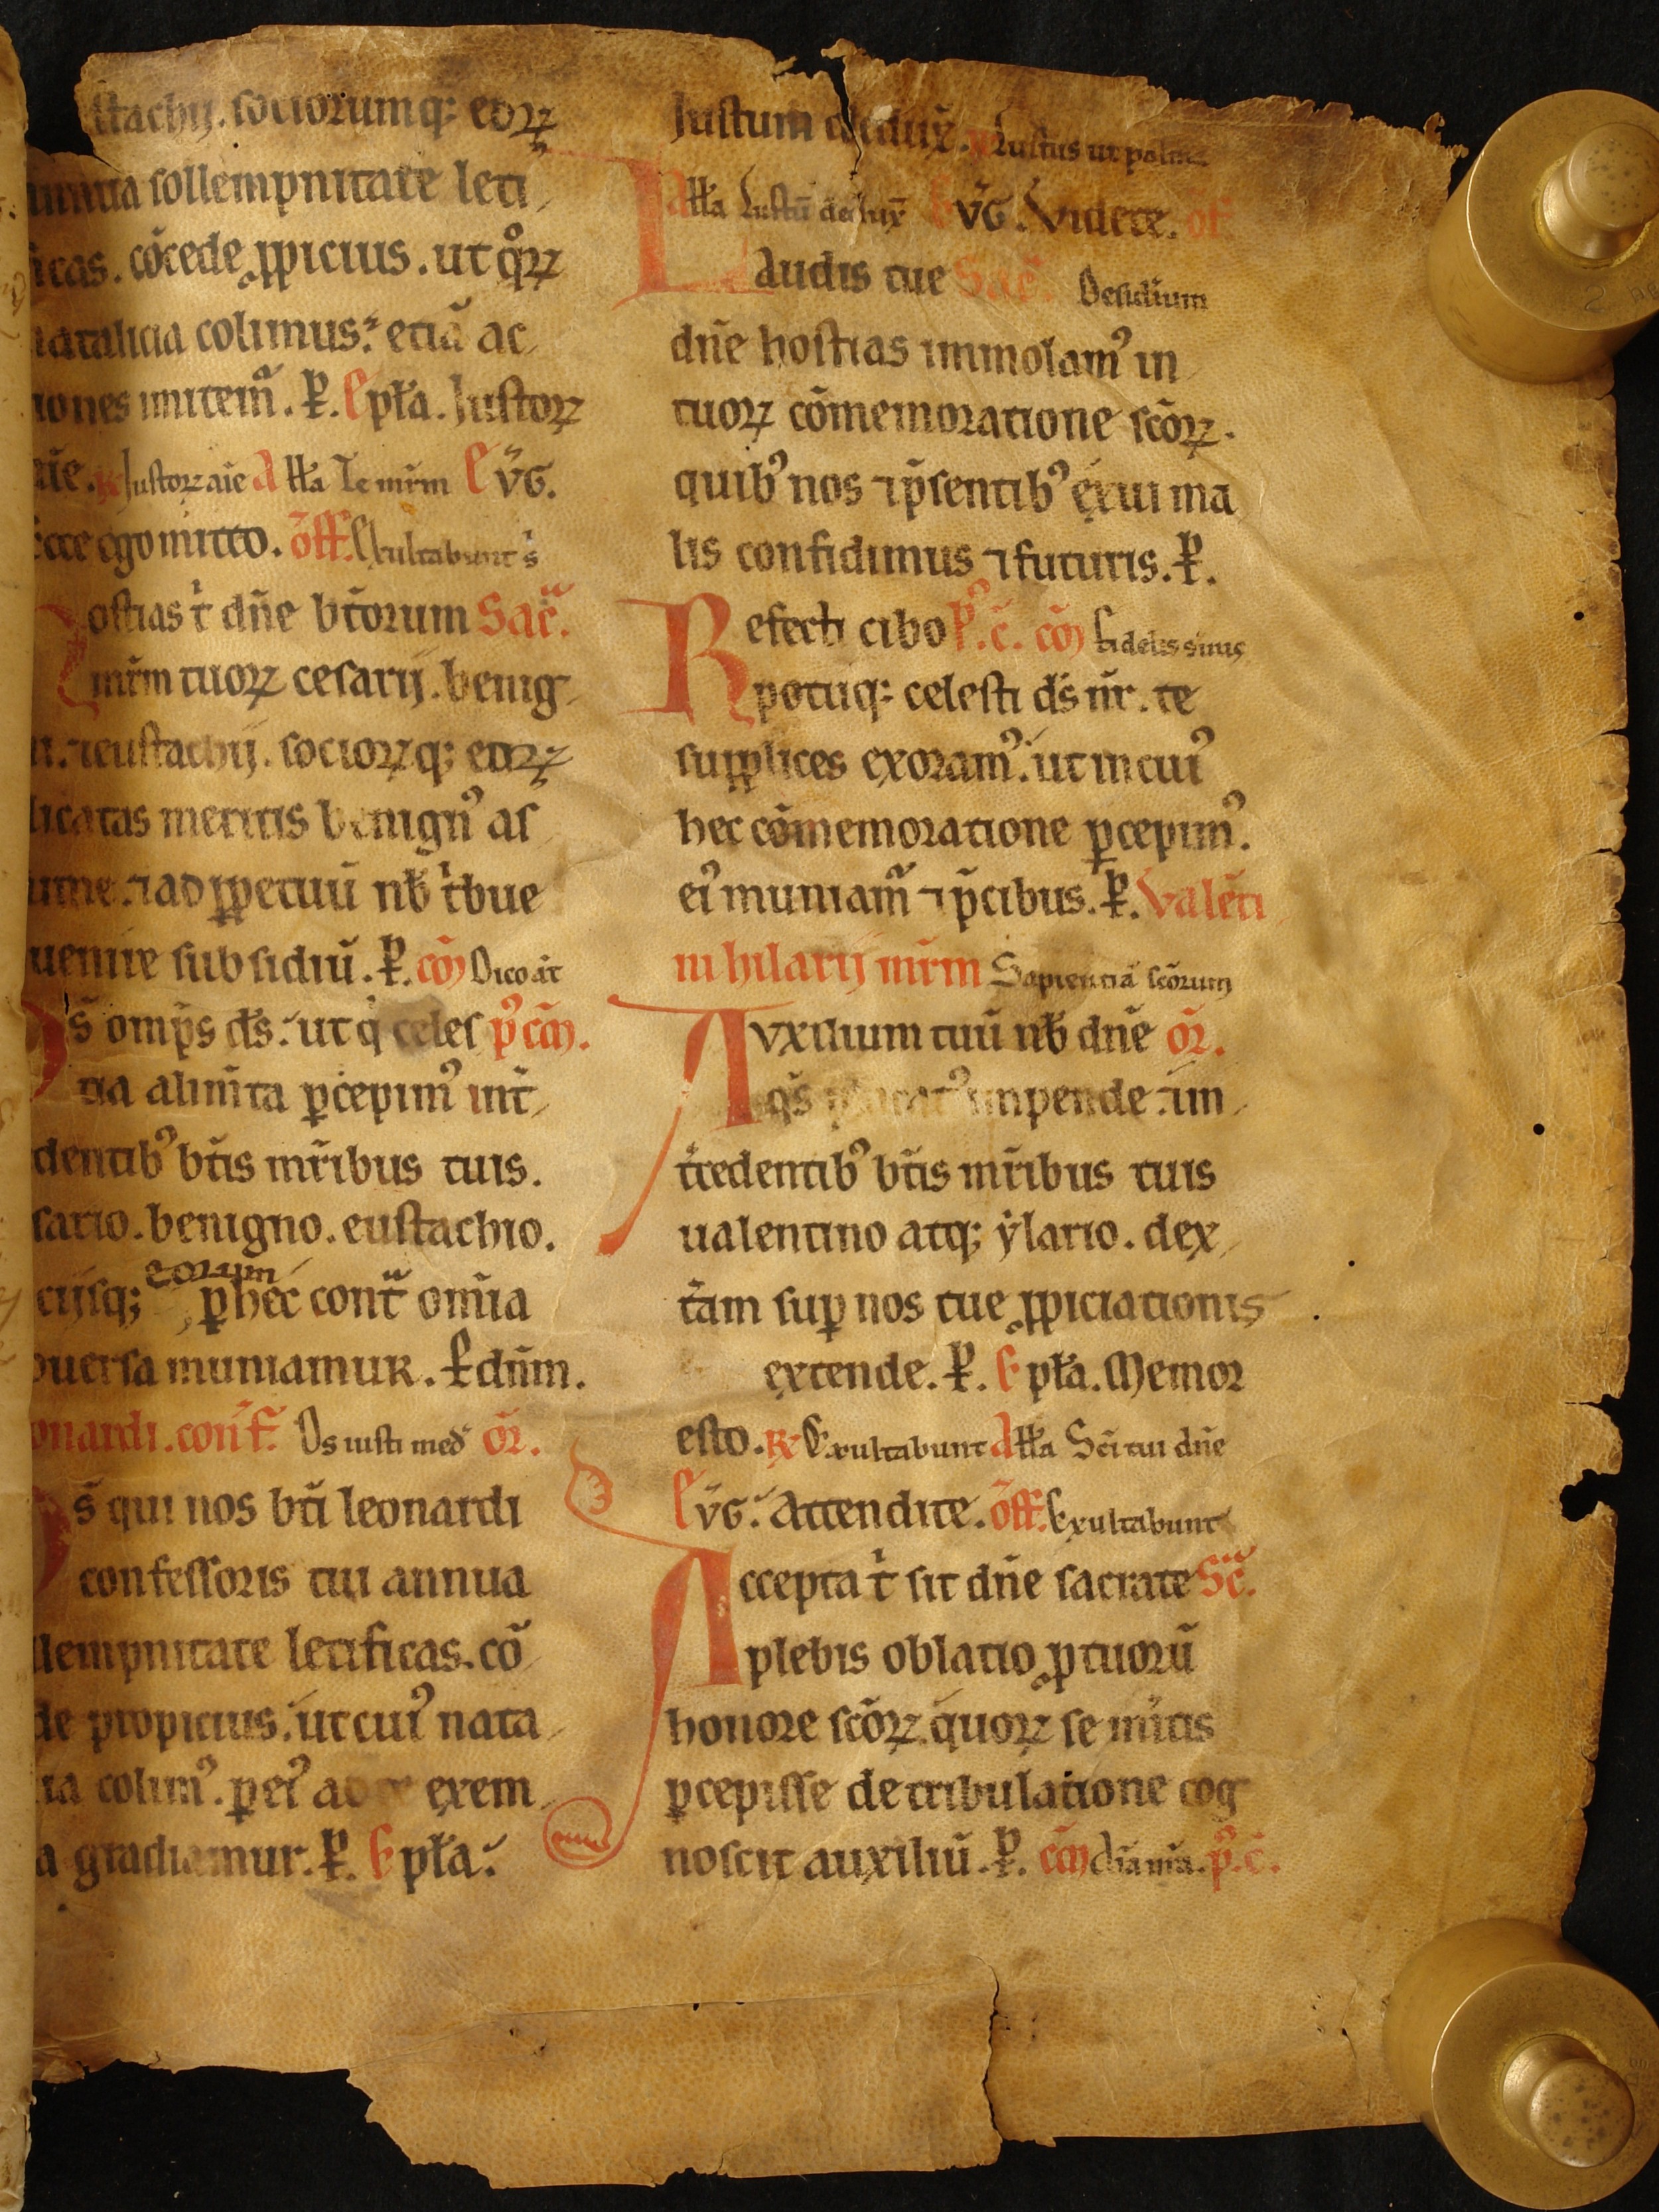 stachij. sociorumq; eoꝝ
annua sollempnitate leti
icas. cōcede ꝓpicius. ut qͦꝝ
natalicia colimus: etiā ac
iones imitem᷑. ꝑ. Epła. Justoꝝ
aīe. ꝶ Justoꝝ aīe Alła Te mr̄m Ev̄G.
Ecce ego mitto. off̄. Exultabunt s̄
ostias t̾ dn̄e bt̄orum Sac̄.
mr̄m tuoꝝ cesarij. benig
ni. ⁊eustachij. socioꝝq; eoꝝ
dicatas meritis benignꝰ as
sume. ⁊ad ꝑpetuū nb̄ t̾bue
uenire subsidiū. ꝑ. cō Dico āt
s̄ omp̄s ds̄. ut q̾ celes p᷒ cō.
tia alim̄ta ꝑcepimꝰ int̄
dentibꝰ bt̄is mr̄ibus tuis.
sario. benigno. eustachio.
cijsq; eorum ꝑ hec cont̄ om̄ia
uersa muniamur. ꝑ dn̄m.
onardi. conf̄. Os iusti med̄ or̄.
s̄ qui nos bt̄i leonardi
confessoris tui annua
llempnitate letificas. cō
de propicius. ut cuiꝰ nata
ia colimꝰ. ꝑ eiꝰ ad te exem
a gradiamur. ꝑ. Epła.
Justum dedux̄. Iustus ut palma
Alła Iustū dedux̄ Ev̄G. Videte. of
Laudis tue Sac̄. Desidīum
dn̄e hostias immolamꝰ in
tuoꝝ cōmemoratione sc̄oꝝ.
quibꝰ nos ⁊ p̄sentibꝰ exui ma
lis confidimus ⁊ futuris. ꝑ.
Refecti cibo p᷒. c̄. cō Fidelis s̾uus
potuq; celesti ds̄ nr̄. te
supplices exoramꝰ. ut in cuiꝰ
hec cōmemoratione ꝑcepimꝰ.
eiꝰ muniam᷑ ⁊ p̄cibus. ꝑ. Valēti
ni hilarij mr̄m Sapientiā sc̄orum
Auxilium tuū nb̄ dn̄e or̄.
qs̄ placatꝰ impende. ⁊ in
t̾cedentibꝰ bt̄is mr̄ibus tuis
ualentino atq; ẏlario. dex
t̾am suꝑ nos tue ꝓpiciationis
extende. ꝑ. Epła. Memor
esto. ꝶ Exultabunt Alła Sc̄i tui dn̄e
Ev̄G. Attendite. off̄. Exultabunt
Accepta t̾ sit dn̄e sacrate Sc̄.
plebis oblatio ꝓ tuorū
honore sc̄oꝝ. quoꝝ se mitis
ꝑcepisse de tribulatione cog
noscit auxiliū. ꝑ. cō Aīa nr̄a. p᷒. c̄.